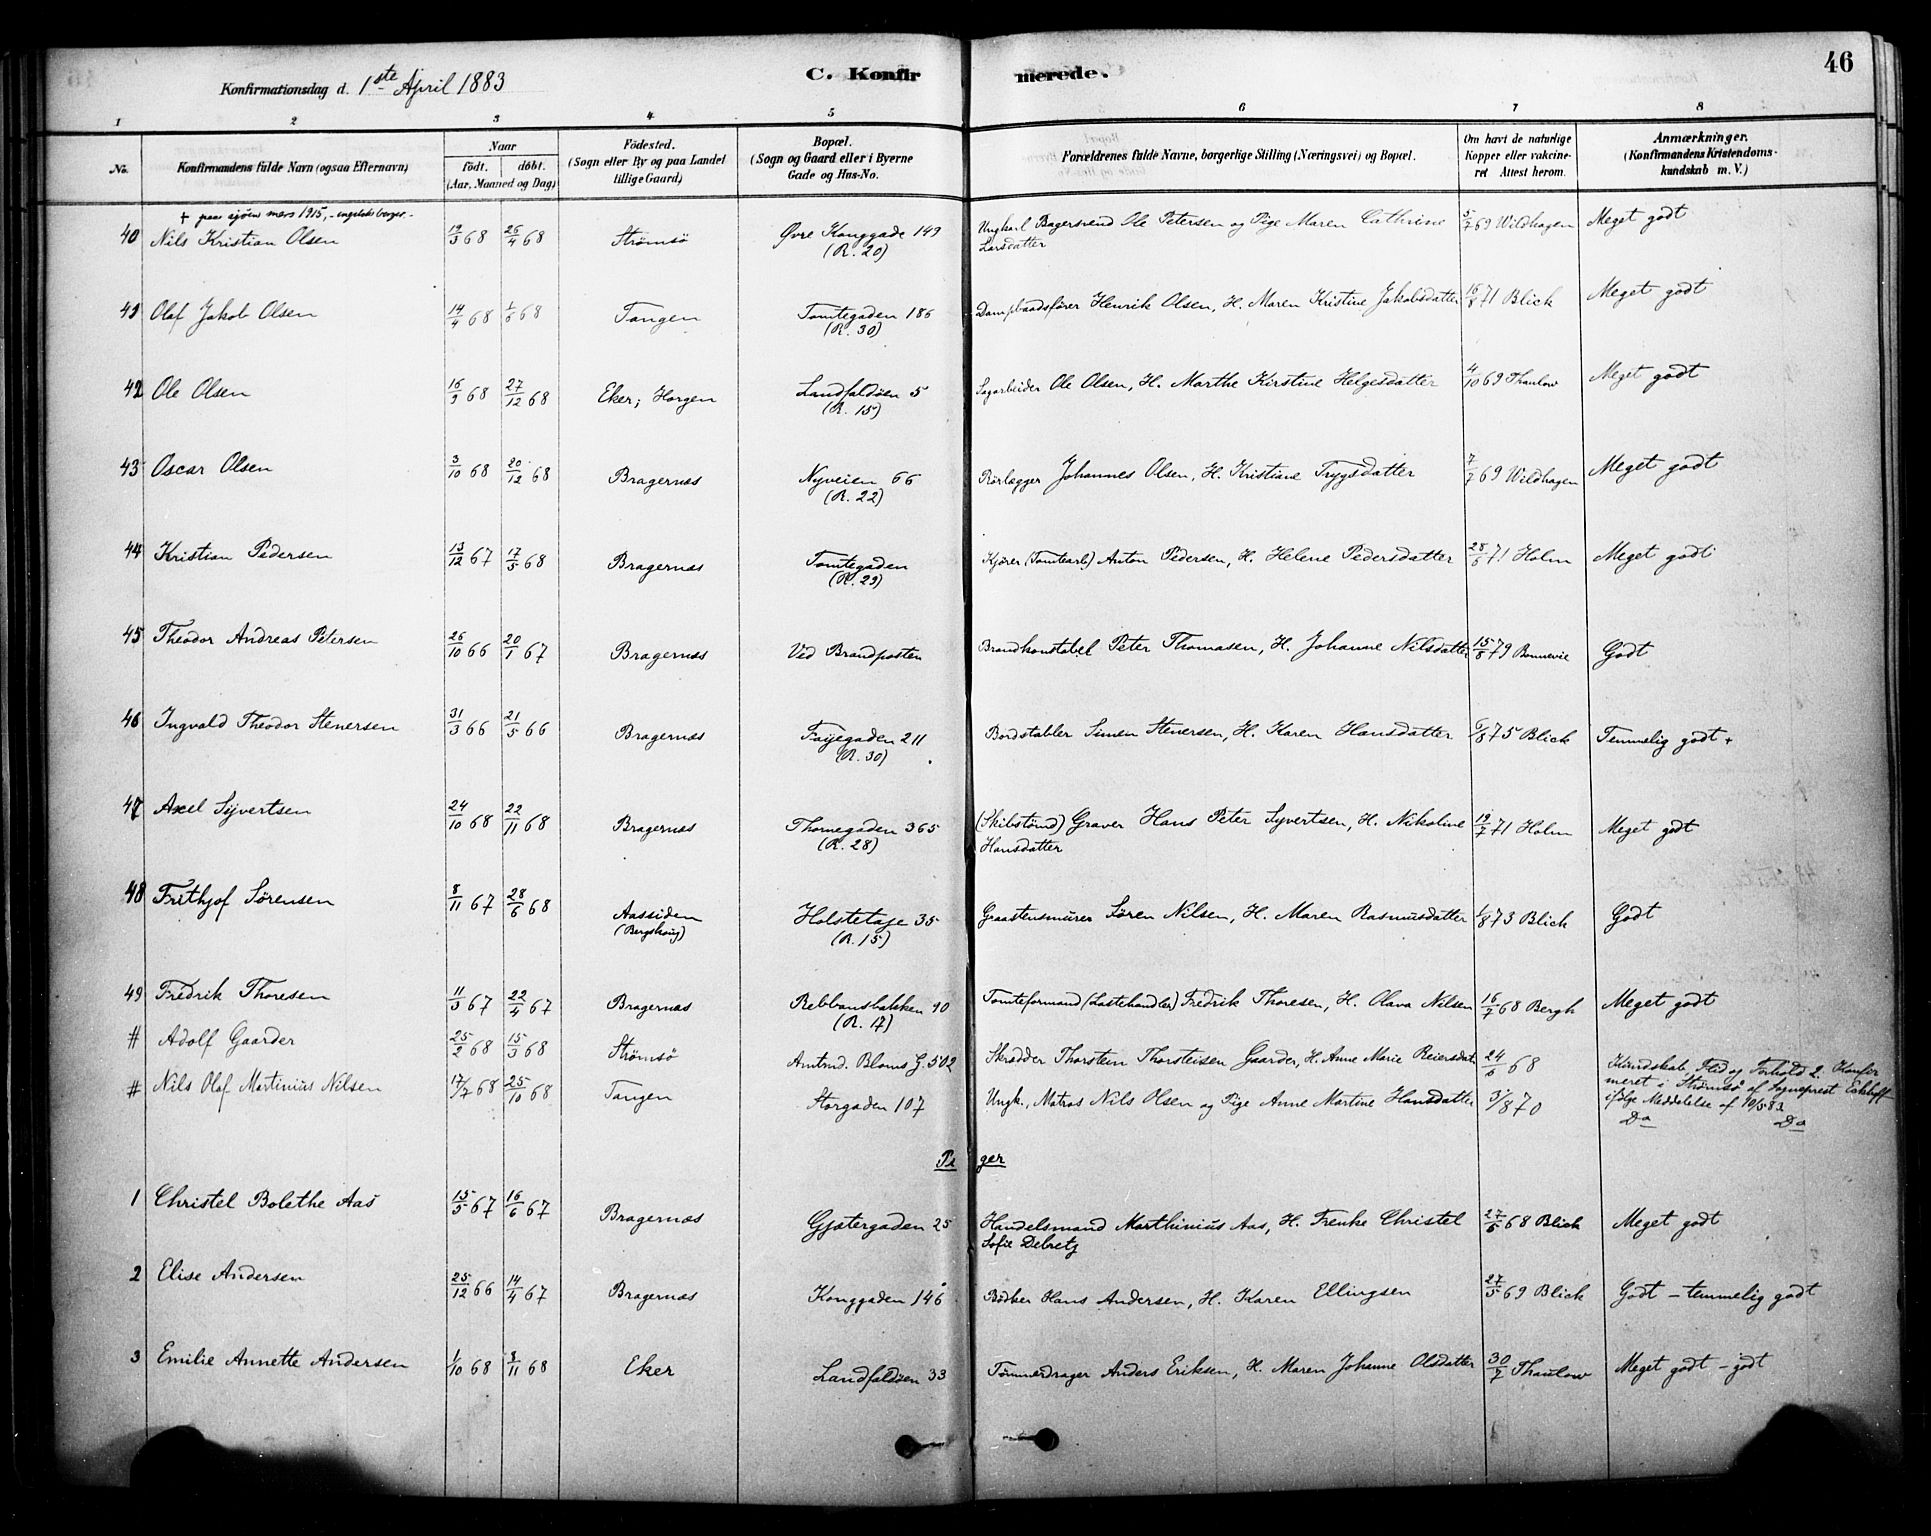 46
Konfirmationsdag d. 1ste April 1883
C. Konfirmerede.
1 2 3 4 5 6 7 8
No. Konfirmandens fulde Navn (ogsaa Efternavn) Naar födt. döbt. (Aar, Maaned og Dag) Födested. (Sogn eller By og paa Landet tillige Gaard) Bopæl. (Sogn og Gaard eller i Byerne Gade og Hus-No. Forældrenes fulde Navne, borgerlige Stilling (Næringsvei) og Bopæl. Om havt de naturlige Kopper eller vakcineret Attest herom. Anmærkninger. (Konfirmandens Kristendomskundskab m. V.)
+ paa sjöen mars 1915,
40 Nils Kristian Olsen 19/3 68 26/4 68 Strömsö Øvre Konggade 149 (R. 20) Ungkarl Bagersvend Ole Petersen og Pige Maren Cathrine Larsdatter 5/7 69 Wildhagen Meget godt
41 Olaf Jakob Olsen 14/4 68 1/6 68 Tangen Tomtegaden 186 (R. 30) Dampbaadsfører Henrik Olsen, H. Maren Kristine Jakobsdatter 16/8 71 Blick Meget godt
42 Ole Olsen 16/9 68 27/12 68 Eker; Horgen Landfaldöen 5 (R. 15) Sagarbeider Ole Olsen, H. Marthe Kirstine Helgesdatter 4/10 69 Thaulow Meget godt
43 Oscar Olsen 3/10 68 20/12 68 Bragernæs Nyveien 66 (R. 22) Rörlægger Johannes Olsen, H. Kristiane Trygsdatter 7/7 69 Wildhagen Meget godt
44 Kristian Pedersen 13/12 67 17/5 68 Bragernæs Tomtegaden (R. 29) Kjörer (Tomtearb.) Anton Pedersen, H. Helene Pedersdatter 28/6 71 Holm Meget godt
45 Theodor Andreas Petersen 26/10 66 20/1 67 Bragernæs Ved Brandposten Brandkonstabel Peter Thomasen, H. Johanne Nilsdatter 15/8 79 Bonnevie Godt
46 Ingvald Theodor Stenersen 31/3 66 21/5 66 Bragernæs Faÿegaden 211 (R. 30) Bordstabler Simen Stenersen, H. Karen Hansdatter 6/8 75 Blick Temmelig godt +
47 Axel Syvertsen 24/10 68 22/11 68 Bragernæs Thornegaden 365 (R. 28) (Skibstömd) Graver Hans Peter Syvertsen, H. Nikoline Hansdatter 19/7 71 Holm Meget godt
48 Frithjof Sörensen 8/11 67 28/6 68 Aassiden (Bergskoug) Holstetaje 35 (R. 15) Graastensmurer Sören Nilsen, H. Maren Rasmusdatter 1/8 73 Blick Godt
49 Fredrik Thoresen 11/3 67 22/4 67 Bragernæs Rebbansbakken 90 (R. 17) Tomteformand (Lastehandler) Fredrik Thoresen, H. Olava Nilsen 16/7 68 Bergh Meget godt
# Adolf Gaarder 25/2 68 15/3 68 Strömsö Amtmd. Bloms G. 502 Skrædder Thorstein Thorsteisen Gaarder, H. Anne Marie Reiersdat. 24/6 68 Kundskab, Flid og Forhold 2. Konfirmeret i Strömsö af Sogneprest Eckhoff ifölge Meddelelse af 10/5 83
# Nils Olaf Martinius Nilsen 17/7 68 25/10 68 Tangen Storgaden 107 Ungk., Matros Nils Olsen og Pige Anne Martine Hansdatter 3/8 70 Do Do
Piger
1 Christel Bolethe Aas 15/5 67 16/6 67 Bragernæs Gjetergaden 25 Handelsmand Marthinius Aas, H. Frenke Christel Sofie Debretz 27/6 68 Blick Meget godt
2 Elise Andersen 25/12 66 14/4 67 Bragernæs Konggaden 146 Bödker Hans Andersen, H. Karen Ellingsen 27/5 69 Blick Godt – temmelig godt
3 Emilie Annette Andersen 1/10 68 8/11 68 Eker Landfaldöen 33 Tömmerdrager Anders Eriksen, H. Maren Johanne Olsdatter 30/7 Thaulow Meget godt – godt